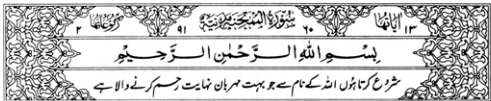 اٰیاتہا ۱۳ ۶۰ سُوْرَۃُ الْمُمْتَحِنَۃِ مَدَنِیَّۃٌ ۹۱ رکوعاتہا ۲
بِسْمِ اللهِ الرَّحْمٰنِ الرَّحِيْمِ
شروع کرتا ہوں اللہ کے نام سے جو بہت مہربان نہایت رحم کرنے والا ہے